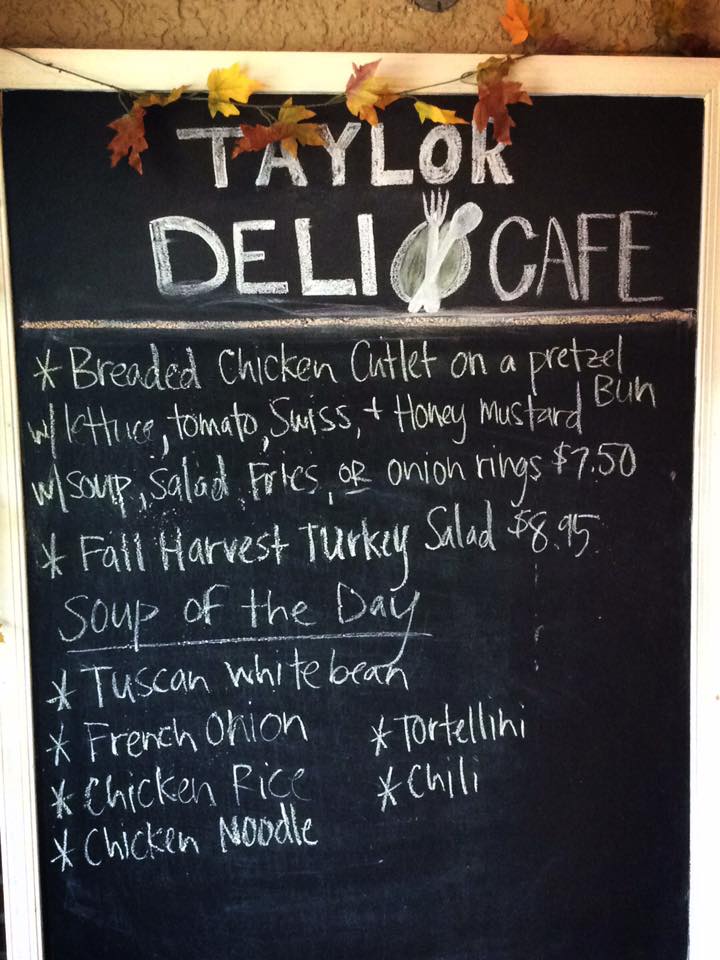 TAYLOR
DELI CAFE
* Breaded Chicken Cutlet on a pretzel Bun
w/ lettuce, tomato, Swiss, + Honey mustard
w/ soup, Salad, Fries, OR onion rings $7.50
* Fall Harvest Turkey Salad $8.95
Soup of the Day
* Tuscan white bean
* French Onion
* Tortellini
* Chicken Rice
* Chili
* Chicken Noodle